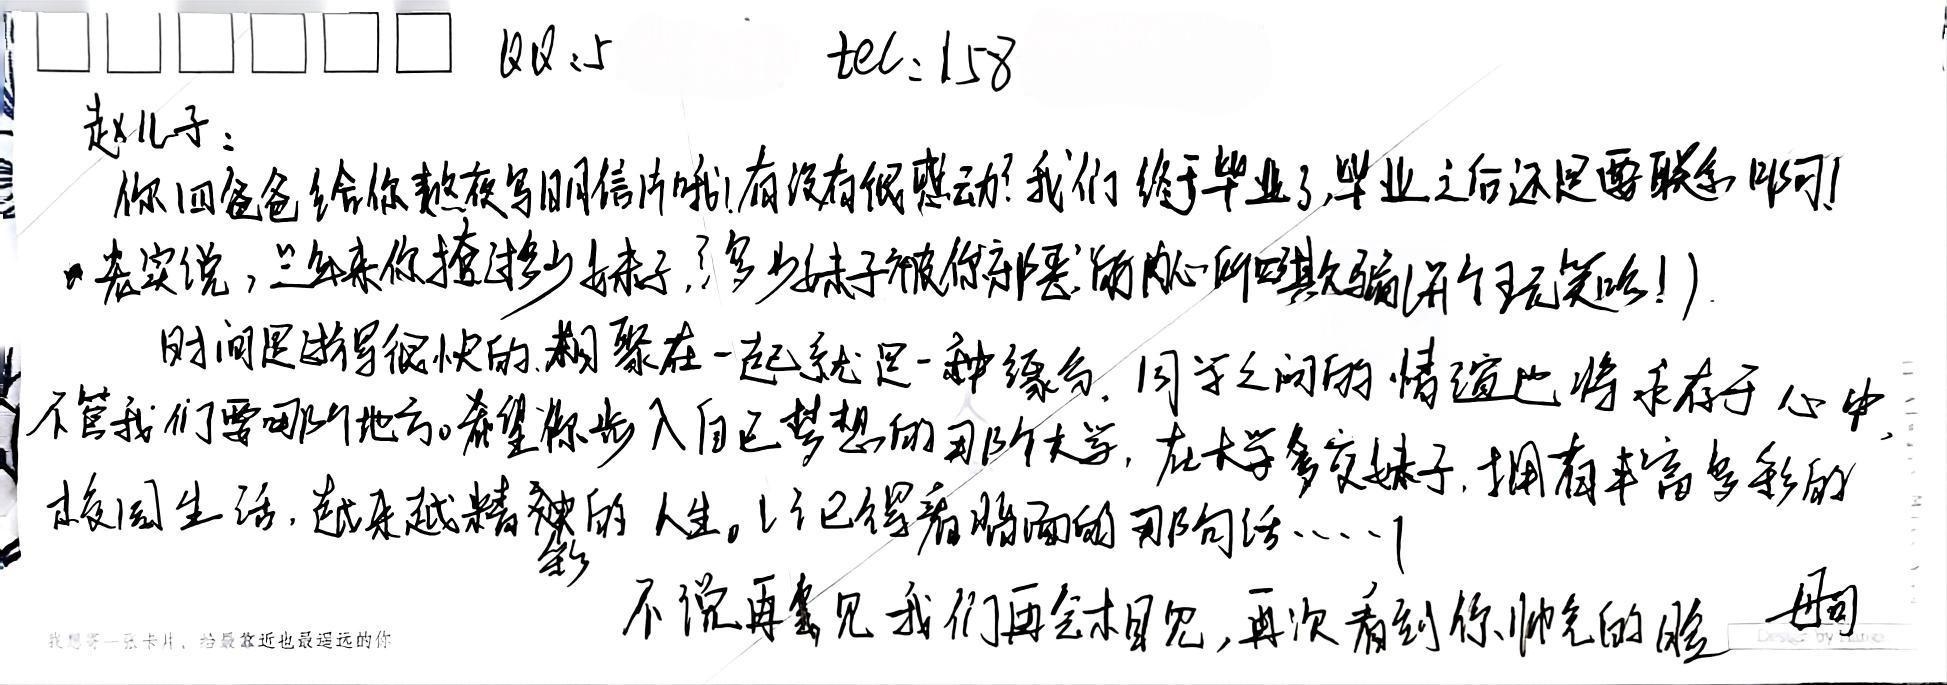 QQ:5 tel:158
赵儿子：
你四爸爸给你熬夜写明信片哦！有没有很感动！我们终于毕业了，毕业之后还是要联系啊！
老实说，三年来你撩过多少妹子，多少妹子被你邪恶的内心所欺骗（开个玩笑哈！）.
时间是过得很快的.相聚在一起就是一种缘分，同学之间的情谊也将永存于心中，
不管我们要哪个地方。希望你步入自己梦想的那个大学，在大学多交妹子，拥有丰富多彩的
校园生活，越来越精彩的人生。（记得看腊面的那句话……）
不说再见我们再会相见，再次看到你帅气的脸
我想寄一张卡片，给最靠近也最遥远的你
Design by